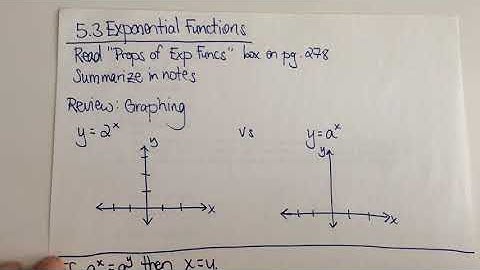 5.3 Exponential Functions
Read "Props of Exp Funcs" box on pg. 278
Summarize in notes
Review: Graphing
y = 2^x vs y = a^x
y y
x x
If a^x = a^y then x = y.